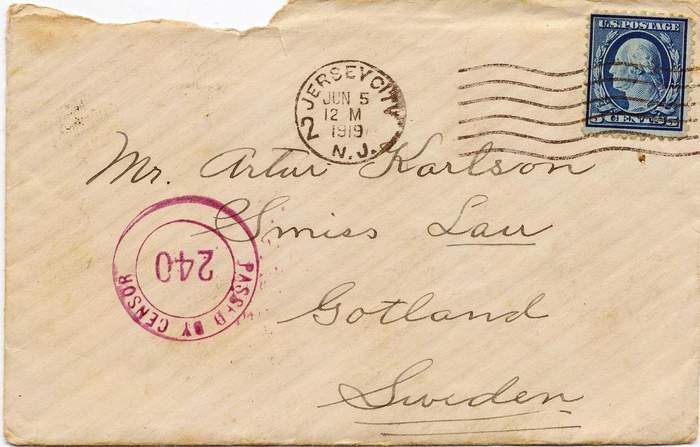 U.S. POSTAGE
5 CENTS 5
JERSEY CITY
JUN 5
12 M
1919
N.J.
2
Mr. Artur Karlson
Smiss Lau
Gotland
Sweden
PASSED BY CENSOR
240